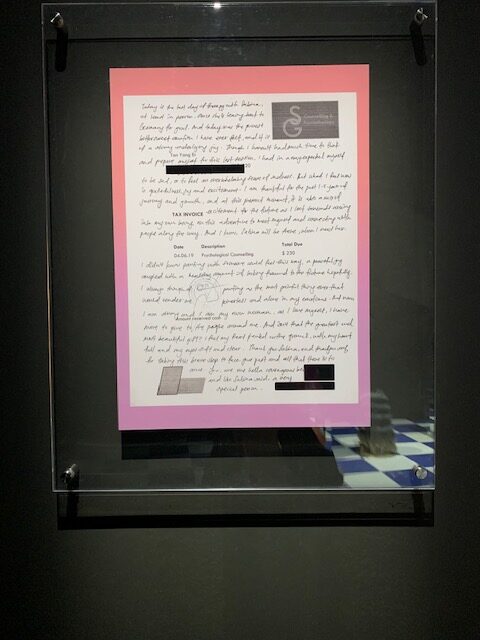 Today is the last day of therapy with Sabrina,
at least in person, since she's leaving back to
Germany for good. And today was the
bittersweet I have ever felt, and it is
of a strong melancholy joy. Though I haven't had much time to think
Tan Yang Er
and prepare myself for this last session, I had in a way expected myself
20
to be sad, or to feel an overwhelming sense of sadness. But what I feel now
is gratefulness, joy and excitement. I am thankful for the past 1.5 year of
journey and growth, and at this present moment, it is also a sense of
TAX INVOICE excitement for the future as I look towards
into my own being, on this adventure to meet myself and connecting with
people along the way. And I know Sabrina will be there, when I need her.
Date Description Total Due
04.06.19 Psychological Counselling $ 230
I didn't know parting with someone could feel this way, a powerful joy
coupled with a looking forward to the future hopefully.
I always thought of parting as the most painful thing ever that
would render me powerless and alone in my emotions. But now
I am strong and I am my own woman, as I love myself, I have
Amount received
more to give to the people around me. And isn't that the greatest and
most beautiful gift? I feel my feet planted on the ground, with my heart
full and my and clear. Thank you Sabrina, and thank myself,
for taking this brave step to face your past and all that there is to
come. You are one hella courageous
and like Sabrina said, a very
special person.
SG
Counselling &
Psychotherapy